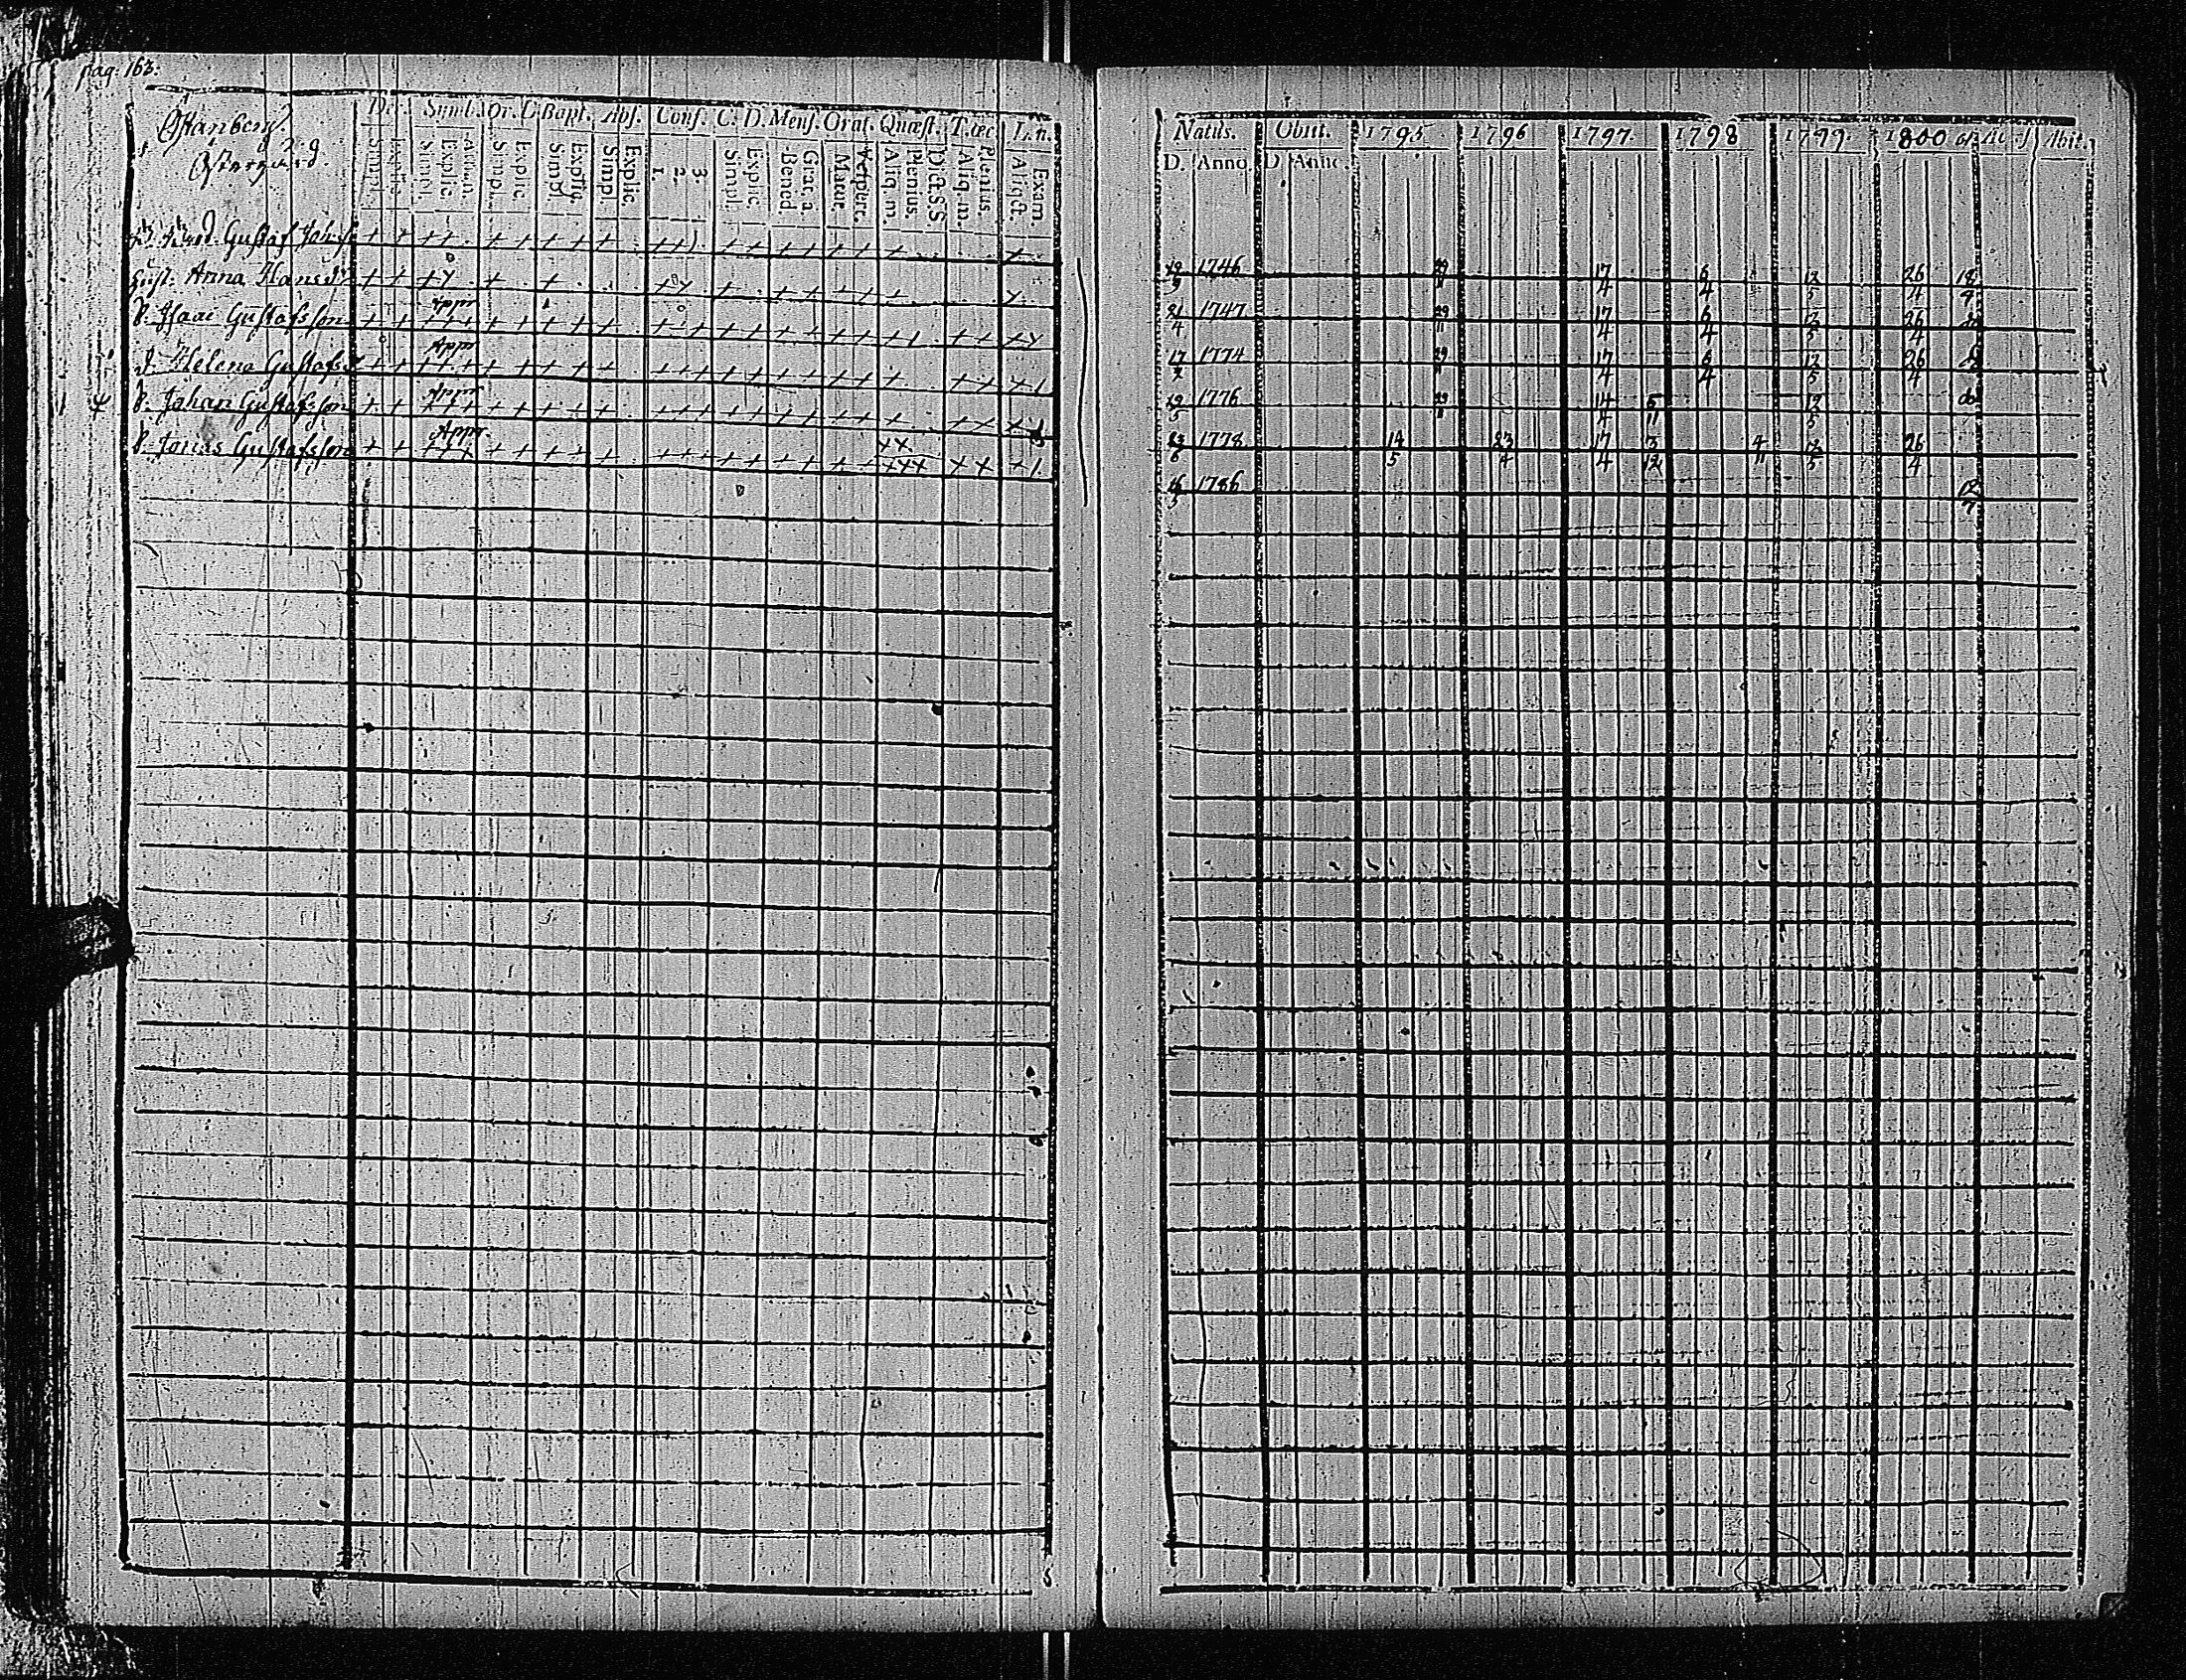 pag: 163.
Östanberg.
Östergård.
D. Symb. Or. D Bapt. Abs. Conf. C. D. Mens. Orat. Quæst. T. œc L. n.
Simpl. Simpl. Explic. Athan. Simpl. Explic. Simpl. Explic. Simpl. Explic. 1. 2. 3. Simpl. Explic. Bened. Grat. a. Matut. Vespert. Aliq. m. Plenius. Dict. S.S Aliq. m. Plenius. Aliqt. Exam.
Gustaf Johans
Hust. Anna Hansdr
Appr
S. Isaac Gustafsson
Appr
D. Helena Gustafsd
Appr
S. Johan Gustafsson
Appr
S. Jonas Gustafsson
Natus. Obiit. 1795 1796 1797. 1798 1799. 1800 Abit.
D. Anno D. Anno
19 1746 29 17 6 12 26 18
9 11 4 4 5 4 9
21 1747 29 17 6 12 26 do
4 11 4 4 5 4
17 1774 29 17 6 12 26 do
11 4 4 5 4
29 1776 29 14 5 12 do
5 11 4 11 5
23 1778 14 23 17 3 4 12 26
6 5 4 4 12 11 5 4
16 1786 12
5 7